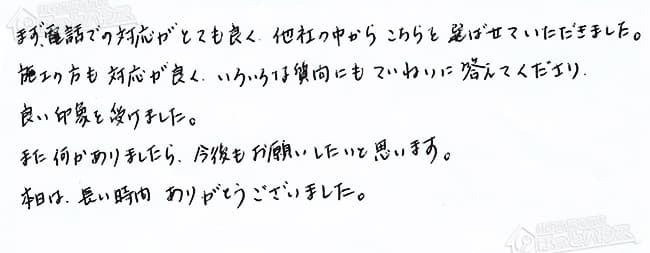 まず、電話での対応がとても良く、他社の中からこちらを選ばせていただきました。
施工の方も対応が良く、いろいろな質問にもていねいに答えてくださり、
良い印象を受けました。
また何かありましたら、今後もお願いしたいと思います。
本日は、長い時間ありがとうございました。